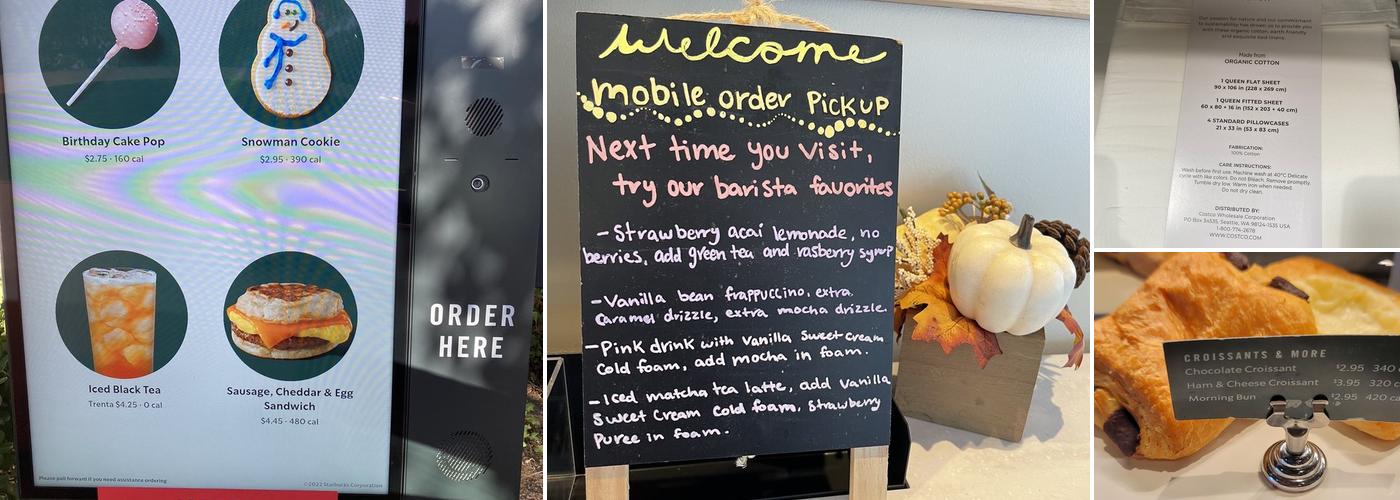 Birthday Cake Pop
$2.75 · 160 cal
Snowman Cookie
$2.95 · 390 cal
Iced Black Tea
Trenta $4.25 · 0 cal
Sausage, Cheddar & Egg
Sandwich
$4.45 · 480 cal
Please pull forward if you need assistance ordering
©2022 Starbucks Corporation
ORDER
HERE
Welcome
mobile order Pickup
Next time you visit,
try our barista favorites
- Strawberry acai lemonade, no
berries, add green tea and rasberry syrup
- Vanilla bean frappuccino, extra
Caramel drizzle, extra mocha drizzle.
- Pink drink with Vanilla Sweet cream
Cold foam, add mocha in foam.
- Iced matcha tea latte, add Vanilla
Sweet Cream Cold foam, Strawberry
Puree in foam.
Our passion for nature and our commitment
to sustainability has driven us to provide you
with these organic cotton, earth friendly
and exquisite bed linens.
Made from
ORGANIC COTTON
1 QUEEN FLAT SHEET
90 x 106 in (228 x 269 cm)
1 QUEEN FITTED SHEET
60 x 80 + 16 in (152 x 203 + 40 cm)
4 STANDARD PILLOWCASES
21 x 33 in (53 x 83 cm)
FABRICATION:
100% Cotton
CARE INSTRUCTIONS:
Wash before first use. Machine wash at 40°C Delicate
cycle with like colors. Do not Bleach. Remove promptly.
Tumble dry low. Warm iron when needed.
Do not dry clean.
DISTRIBUTED BY:
Costco Wholesale Corporation
PO Box 34535, Seattle, WA 98124-1535 USA
1-800-774-2678
WWW.COSTCO.COM
CROISSANTS & MORE
Chocolate Croissant $2.95 340
Ham & Cheese Croissant $3.95 320 c
Morning Bun $2.95 420 ca